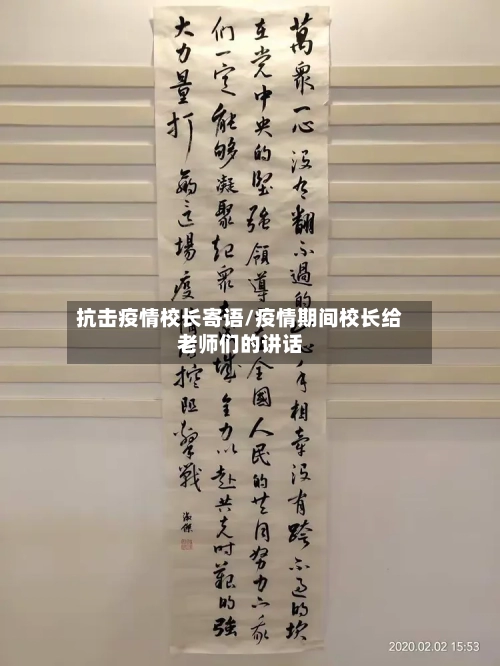 萬衆一心没有翻不過的
心手相牽没有跨不過的坎
在党中央的堅强領導
全國人民的共同努力下我
們一定能够凝聚起衆
城全力以赴共克时艱的强
大力量打
這場疫
控阻擊戰
抗击疫情校长寄语/疫情期间校长给
老师们的讲话
2020.02.02 15:53